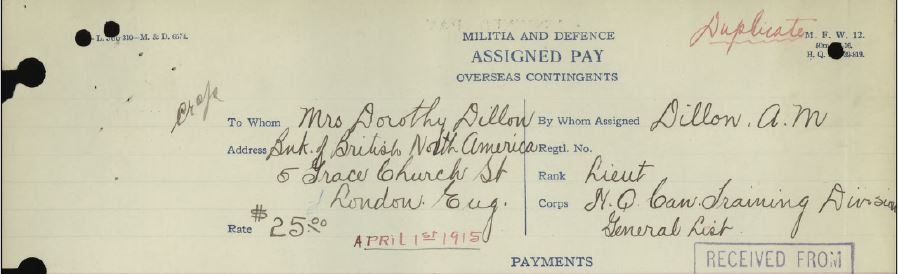 MILITIA AND DEFENCE
Duplicate
M. F. W. 12.
ASSIGNED PAY
H. Q.
OVERSEAS CONTINGENTS
To Whom Mrs Dorothy Dillon
By Whom Assigned Dillon. A. M
Address Bnk. of British North America
Regtl. No.
5 Grace Church St
Rank Lieut
London. Eng.
Corps H. Q. Can. Training Division
Rate $25.00
General List
APRIL 1ST 1915
RECEIVED FROM
PAYMENTS